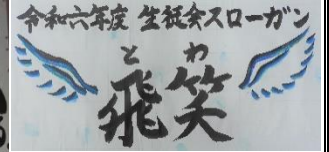 令和六年度 生徒会スローガン
とわ
飛笑